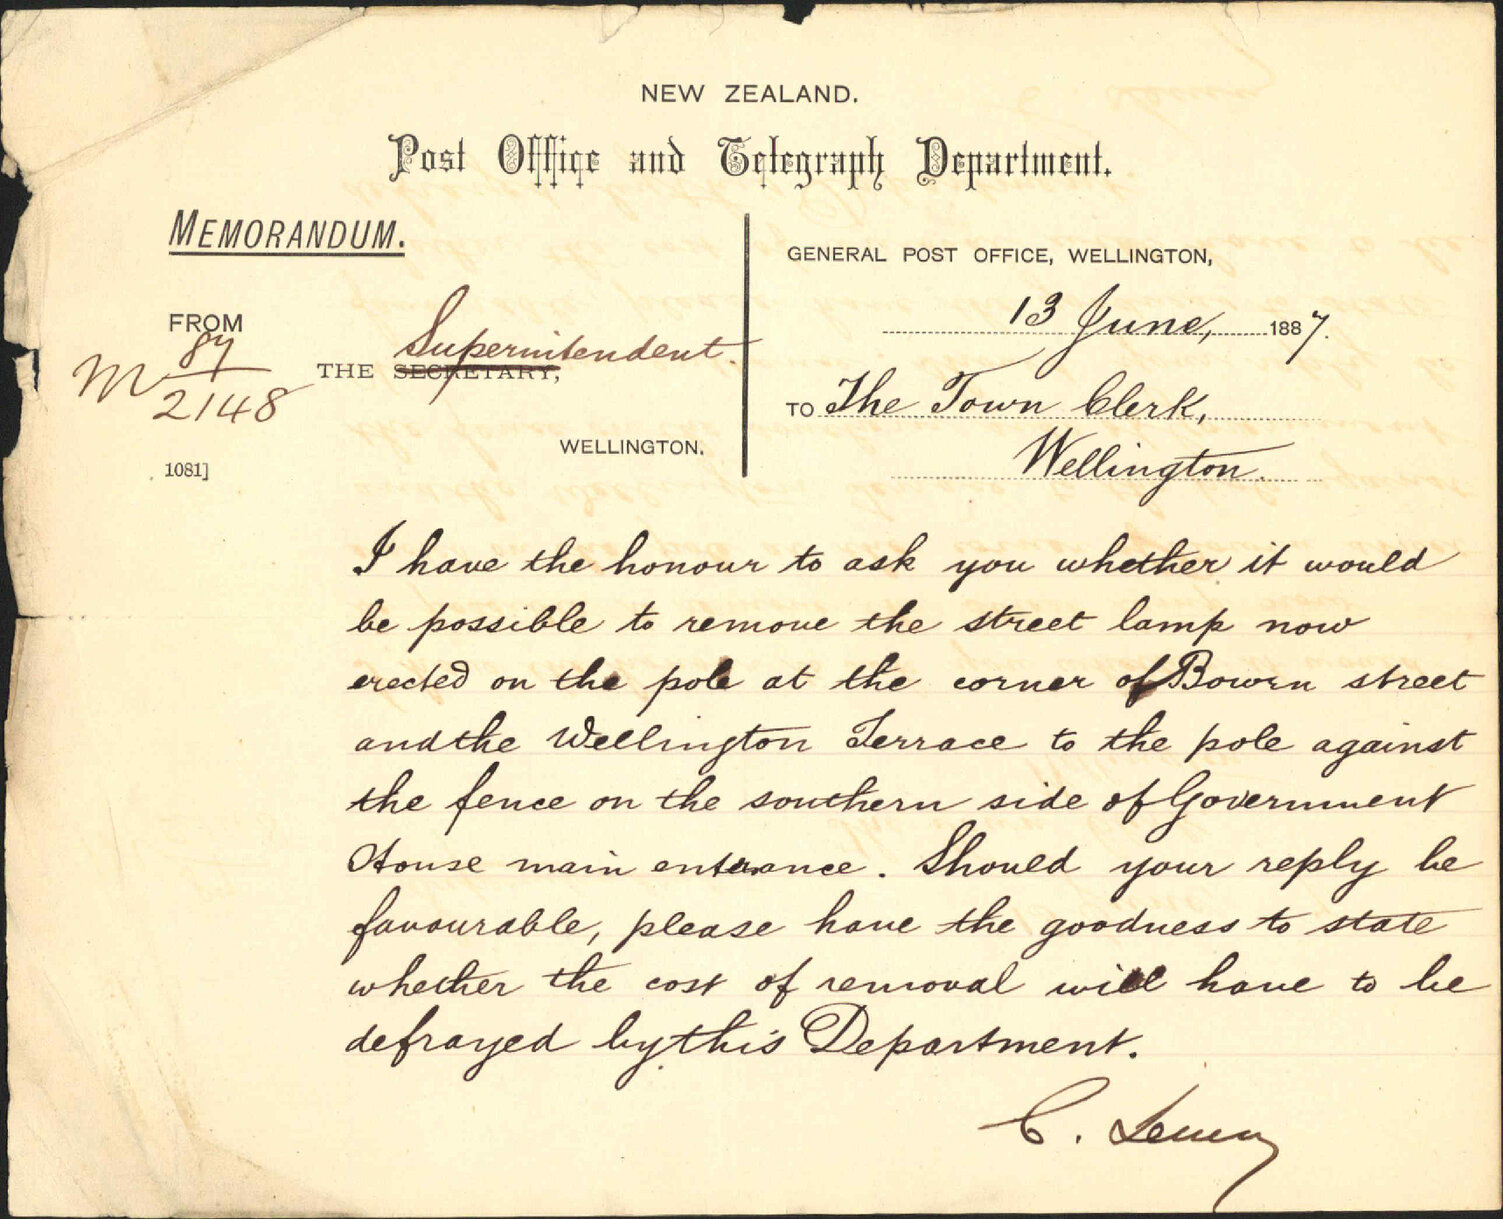 NEW ZEALAND.
Post Office and Telegraph Department.
MEMORANDUM.
FROM
M 87/2148
THE SECRETARY, Superintendent.
WELLINGTON.
1081]
GENERAL POST OFFICE, WELLINGTON,
13 June, 1887.
TO The Town Clerk,
Wellington.
I have the honour to ask you whether it would
be possible to remove the street lamp now
erected on the pole at the corner of Bowen street
and the Wellington Terrace to the pole against
the fence on the southern side of Government
House main entrance. Should your reply be
favourable, please have the goodness to state
whether the cost of removal will have to be
defrayed by this Department.
C. Lemon